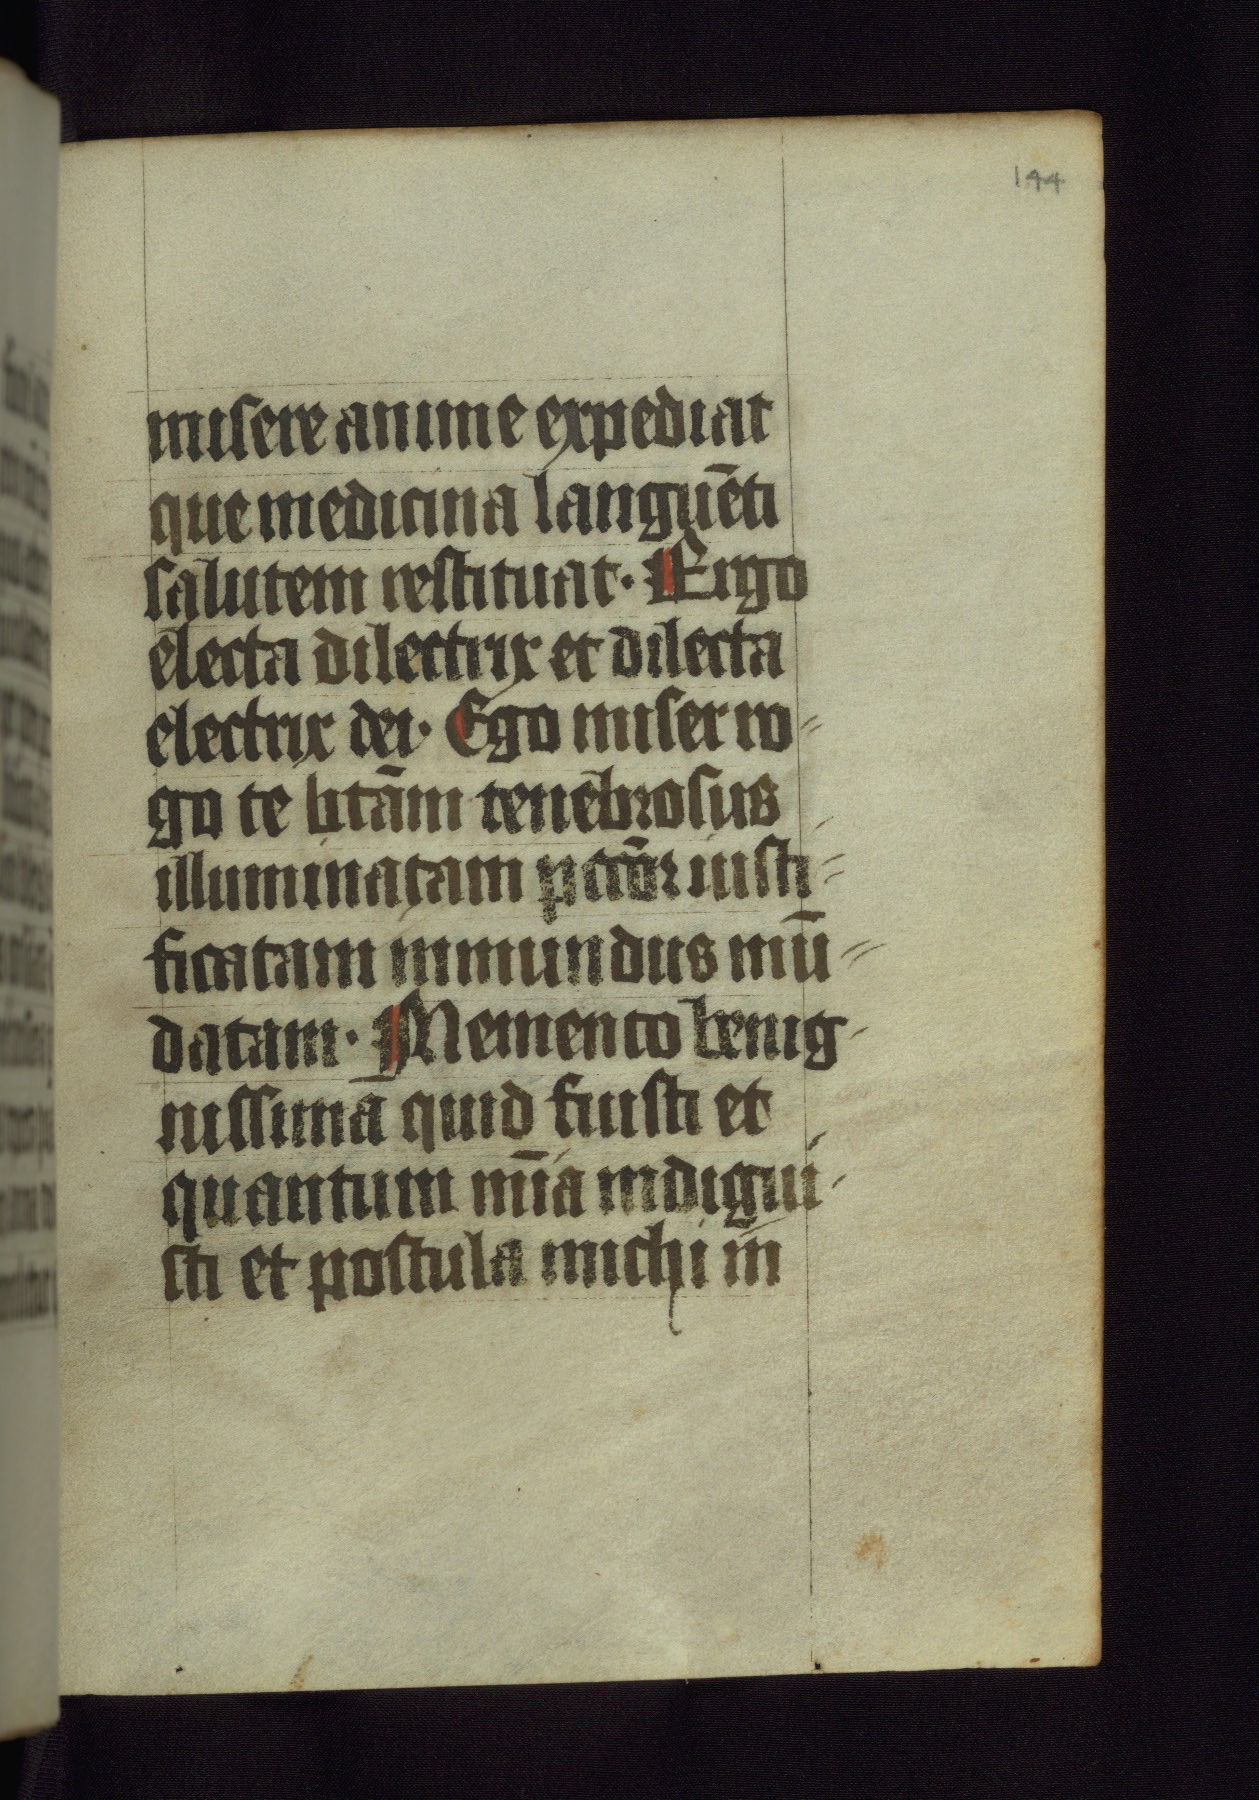 144
misere anime expediat
que medicina languēti
salutem restituat. Ergo
electa dilectrix et dilecta
electrix dei. Ego miser ro-
go te btām tenebrosus
illuminatam pctōr iusti-
ficatam inmundus mū-
datam. Memento benig-
nissima quid fuisti et
quantum mīa indigui-
sti et postula michi m̄